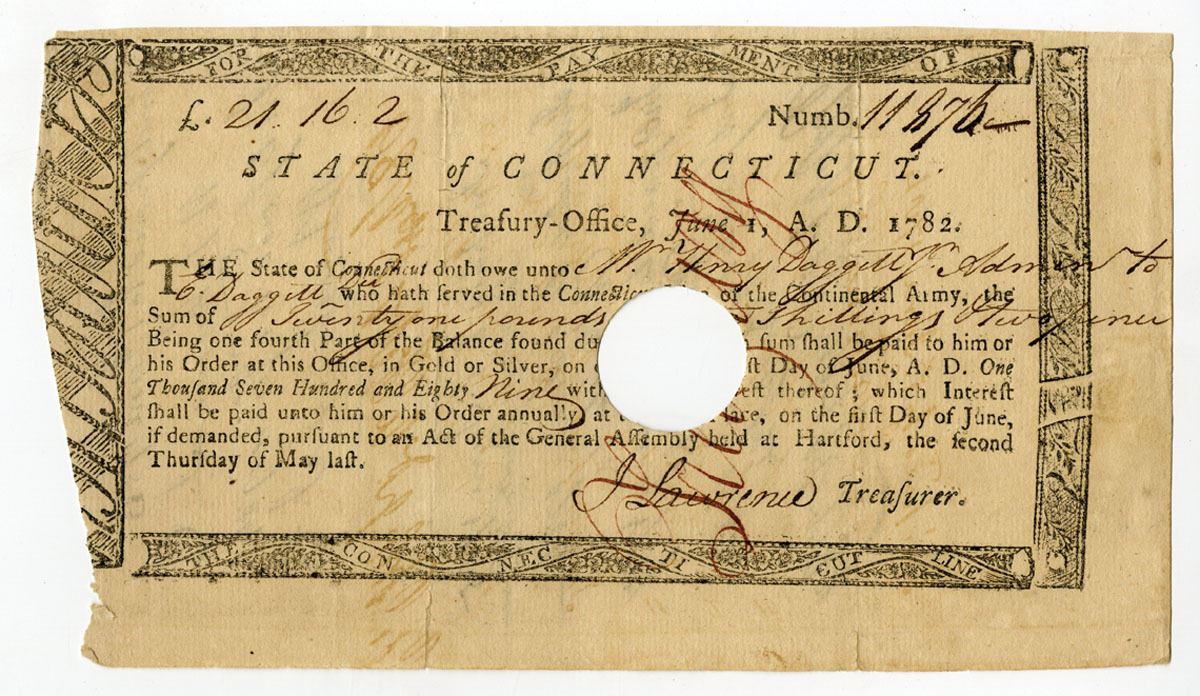 FOR THE PAY MENT OF
£. 21. 16. 2 Numb. 11876
STATE of CONNECTICUT.
Treaſury-Office, June 1, A. D. 1782.
THE State of Connecticut doth owe unto Mr. Henry Daggett Jr. Admin to
E. Daggett who hath ſerved in the Connecticu of the Continental Army, the
Sum of Twenty one pounds Shillings & two pence
Being one fourth Part of the Balance found du ſum ſhall be paid to him or
his Order at this Office, in Gold or Silver, on ſt Day of June, A. D. One
Thouſand Seven Hundred and Eighty Nine with eſt thereof; which Intereſt
ſhall be paid unto him or his Order annually at lace, on the firſt Day of June,
if demanded, purſuant to an Act of the General Aſſembly held at Hartford, the ſecond
Thurſday of May laſt.
J Lawrence Treaſurer.
THE CON NEC TI CUT LINE